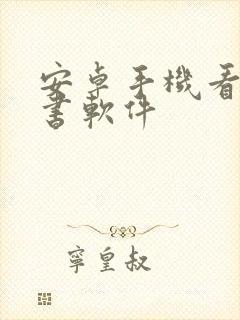 安卓手機看
書軟件
寧皇叔